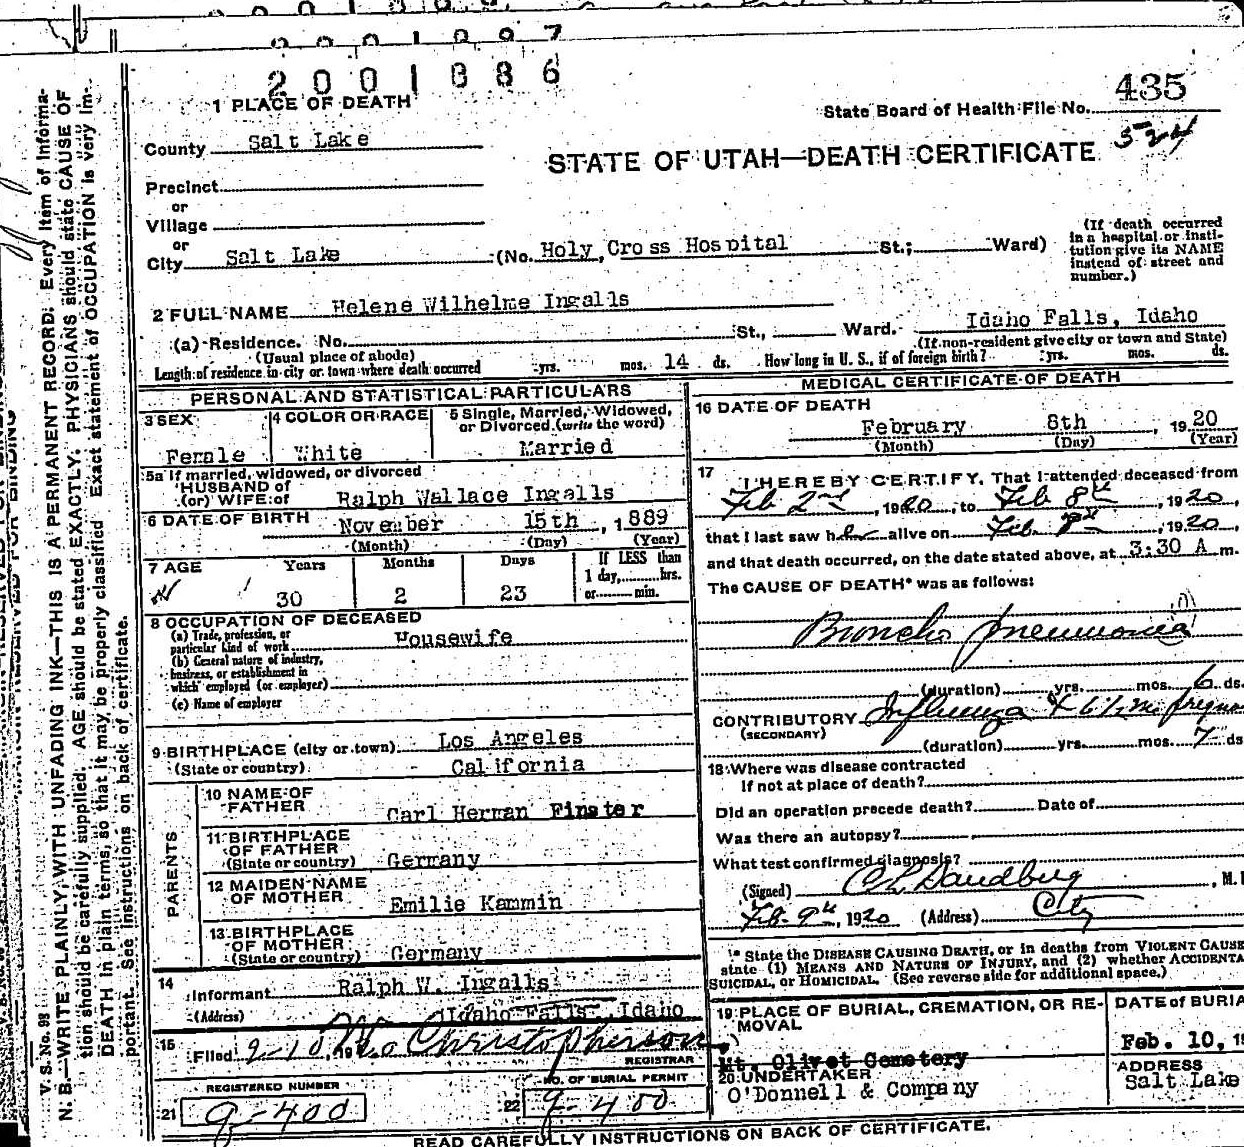 2001897
2001886
435
State Board of Health File No.
524
STATE OF UTAH—DEATH CERTIFICATE
1 PLACE OF DEATH
County Salt Lake
Precinct
or
Village
or
City Salt Lake (No. Holy Cross Hospital St.; Ward)
(If death occurred
in a hospital or insti-
tution give its NAME
instead of street and
number.)
2 FULL NAME Helene Wilhelme Ingalls
(a) Residence. No. St., Ward. Idaho Falls, Idaho
(Usual place of abode) (If non-resident give city or town and State)
Length of residence in city or town where death occurred yrs. mos. 14 ds. How long in U. S., if of foreign birth? yrs. mos. ds.
PERSONAL AND STATISTICAL PARTICULARS
3 SEX 4 COLOR OR RACE 5 Single, Married, Widowed,
or Divorced. (write the word)
Female White Married
5a If married, widowed, or divorced
HUSBAND of
(or) WIFE of Ralph Wallace Ingalls
6 DATE OF BIRTH November 15th, 1889
(Month) (Day) (Year)
7 AGE Years Months Days If LESS than
1 day, hrs.
or min.
30 2 23
8 OCCUPATION OF DECEASED
(a) Trade, profession, or
particular kind of work Housewife
(b) General nature of industry,
business, or establishment in
which employed (or employer)
(c) Name of employer
9 BIRTHPLACE (city or town) Los Angeles
(State or country) California
PARENTS
10 NAME OF
FATHER Carl Herman Finster
11 BIRTHPLACE
OF FATHER
(State or country) Germany
12 MAIDEN NAME
OF MOTHER Emilie Kammin
13 BIRTHPLACE
OF MOTHER
(State or country) Germany
14
Informant Ralph W. Ingalls
(Address) Idaho Falls, Idaho
15
Filed 2-10, 1920 Christopherson
REGISTRAR
REGISTERED NUMBER
21 g-400
NO. OF BURIAL PERMIT
22 g-400
MEDICAL CERTIFICATE OF DEATH
16 DATE OF DEATH
February 8th, 1920
(Month) (Day) (Year)
17 I HEREBY CERTIFY, That I attended deceased from
Feb 2nd, 1920, to Feb 8th, 1920
that I last saw her alive on Feb. 1920,
and that death occurred, on the date stated above, at 3:30 A m.
The CAUSE OF DEATH* was as follows:
Broncho pneumonia
(duration) yrs. mos. 6 ds.
CONTRIBUTORY Influenza &
(SECONDARY)
(duration) yrs. mos. 7 ds
18 Where was disease contracted
if not at place of death?
Did an operation precede death? Date of
Was there an autopsy?
What test confirmed diagnosis?
(Signed) Sandberg, M.
Feb. 9th, 1920 (Address) City
* State the DISEASE CAUSING DEATH, or in deaths from VIOLENT CAUSE
state (1) MEANS AND NATURE OF INJURY, and (2) whether ACCIDENTA
SUICIDAL, or HOMICIDAL. (See reverse side for additional space.)
19 PLACE OF BURIAL, CREMATION, OR RE-
MOVAL
Mt. Olivet Cemetery
DATE of BURIA
Feb. 10, 1
20 UNDERTAKER
O'Donnell & Company
ADDRESS
Salt Lake
READ CAREFULLY INSTRUCTIONS ON BACK OF CERTIFICATE.
V. S. No. 98
N. B.—WRITE PLAINLY, WITH UNFADING INK—THIS IS A PERMANENT RECORD. Every item of informa-
tion should be carefully supplied. AGE should be stated EXACTLY. PHYSICIANS should state CAUSE OF
DEATH in plain terms, so that it may be properly classified. Exact statement of OCCUPATION is very im-
portant. See instructions on back of certificate.